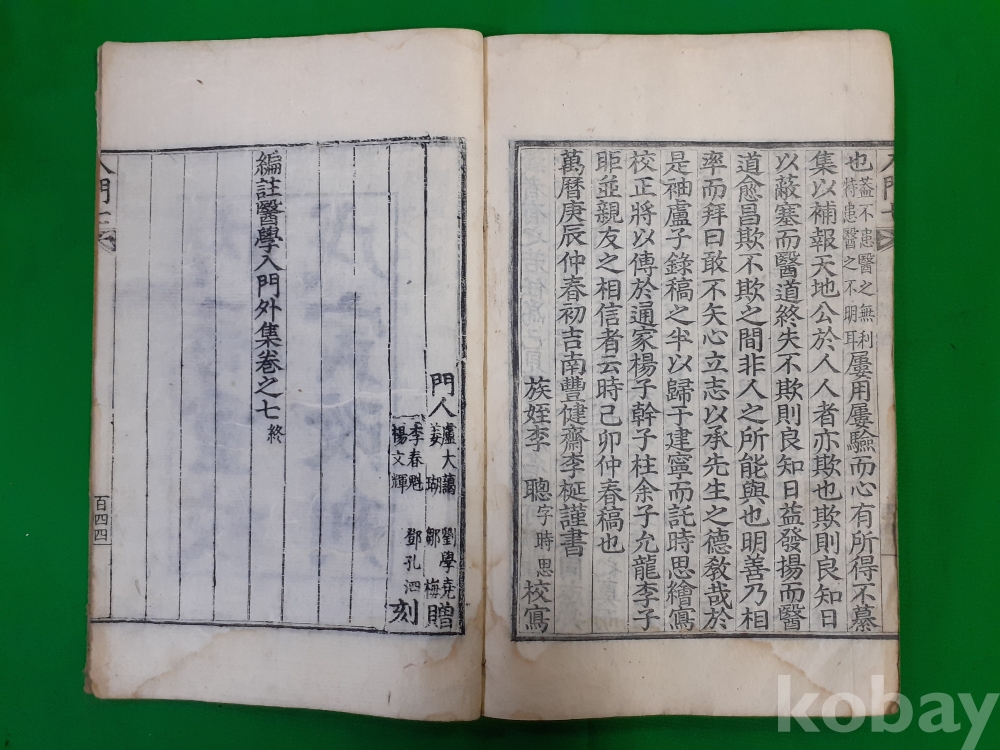 也蓋不患醫之無利特患醫之不明耳屢用屢驗而心有所得不纂
集以補報天地公於人人者亦欺也欺則良知日
以蔽塞而醫道終失不欺則良知日益發揚而醫
道愈昌欺不欺之間非人之所能與也明善乃相
率而拜曰敢不矢心立志以承先生之德敎哉於
是袖盧子錄稿之半以歸于建寧而託時思繪寫
校正將以傳於通家楊子幹子柱余子允龍李子
昛並親友之相信者云時己卯仲春稿也
萬曆庚辰仲春初吉南豐健齋李梴謹書
族姪李聰字時思校寫
入門七
門人
盧大藹 劉學堯
姜瑚 鄒梅 贈
李春魁 鄧孔泗
楊文輝 刻
編註醫學入門外集卷之七終
入門七
百四四
kobay